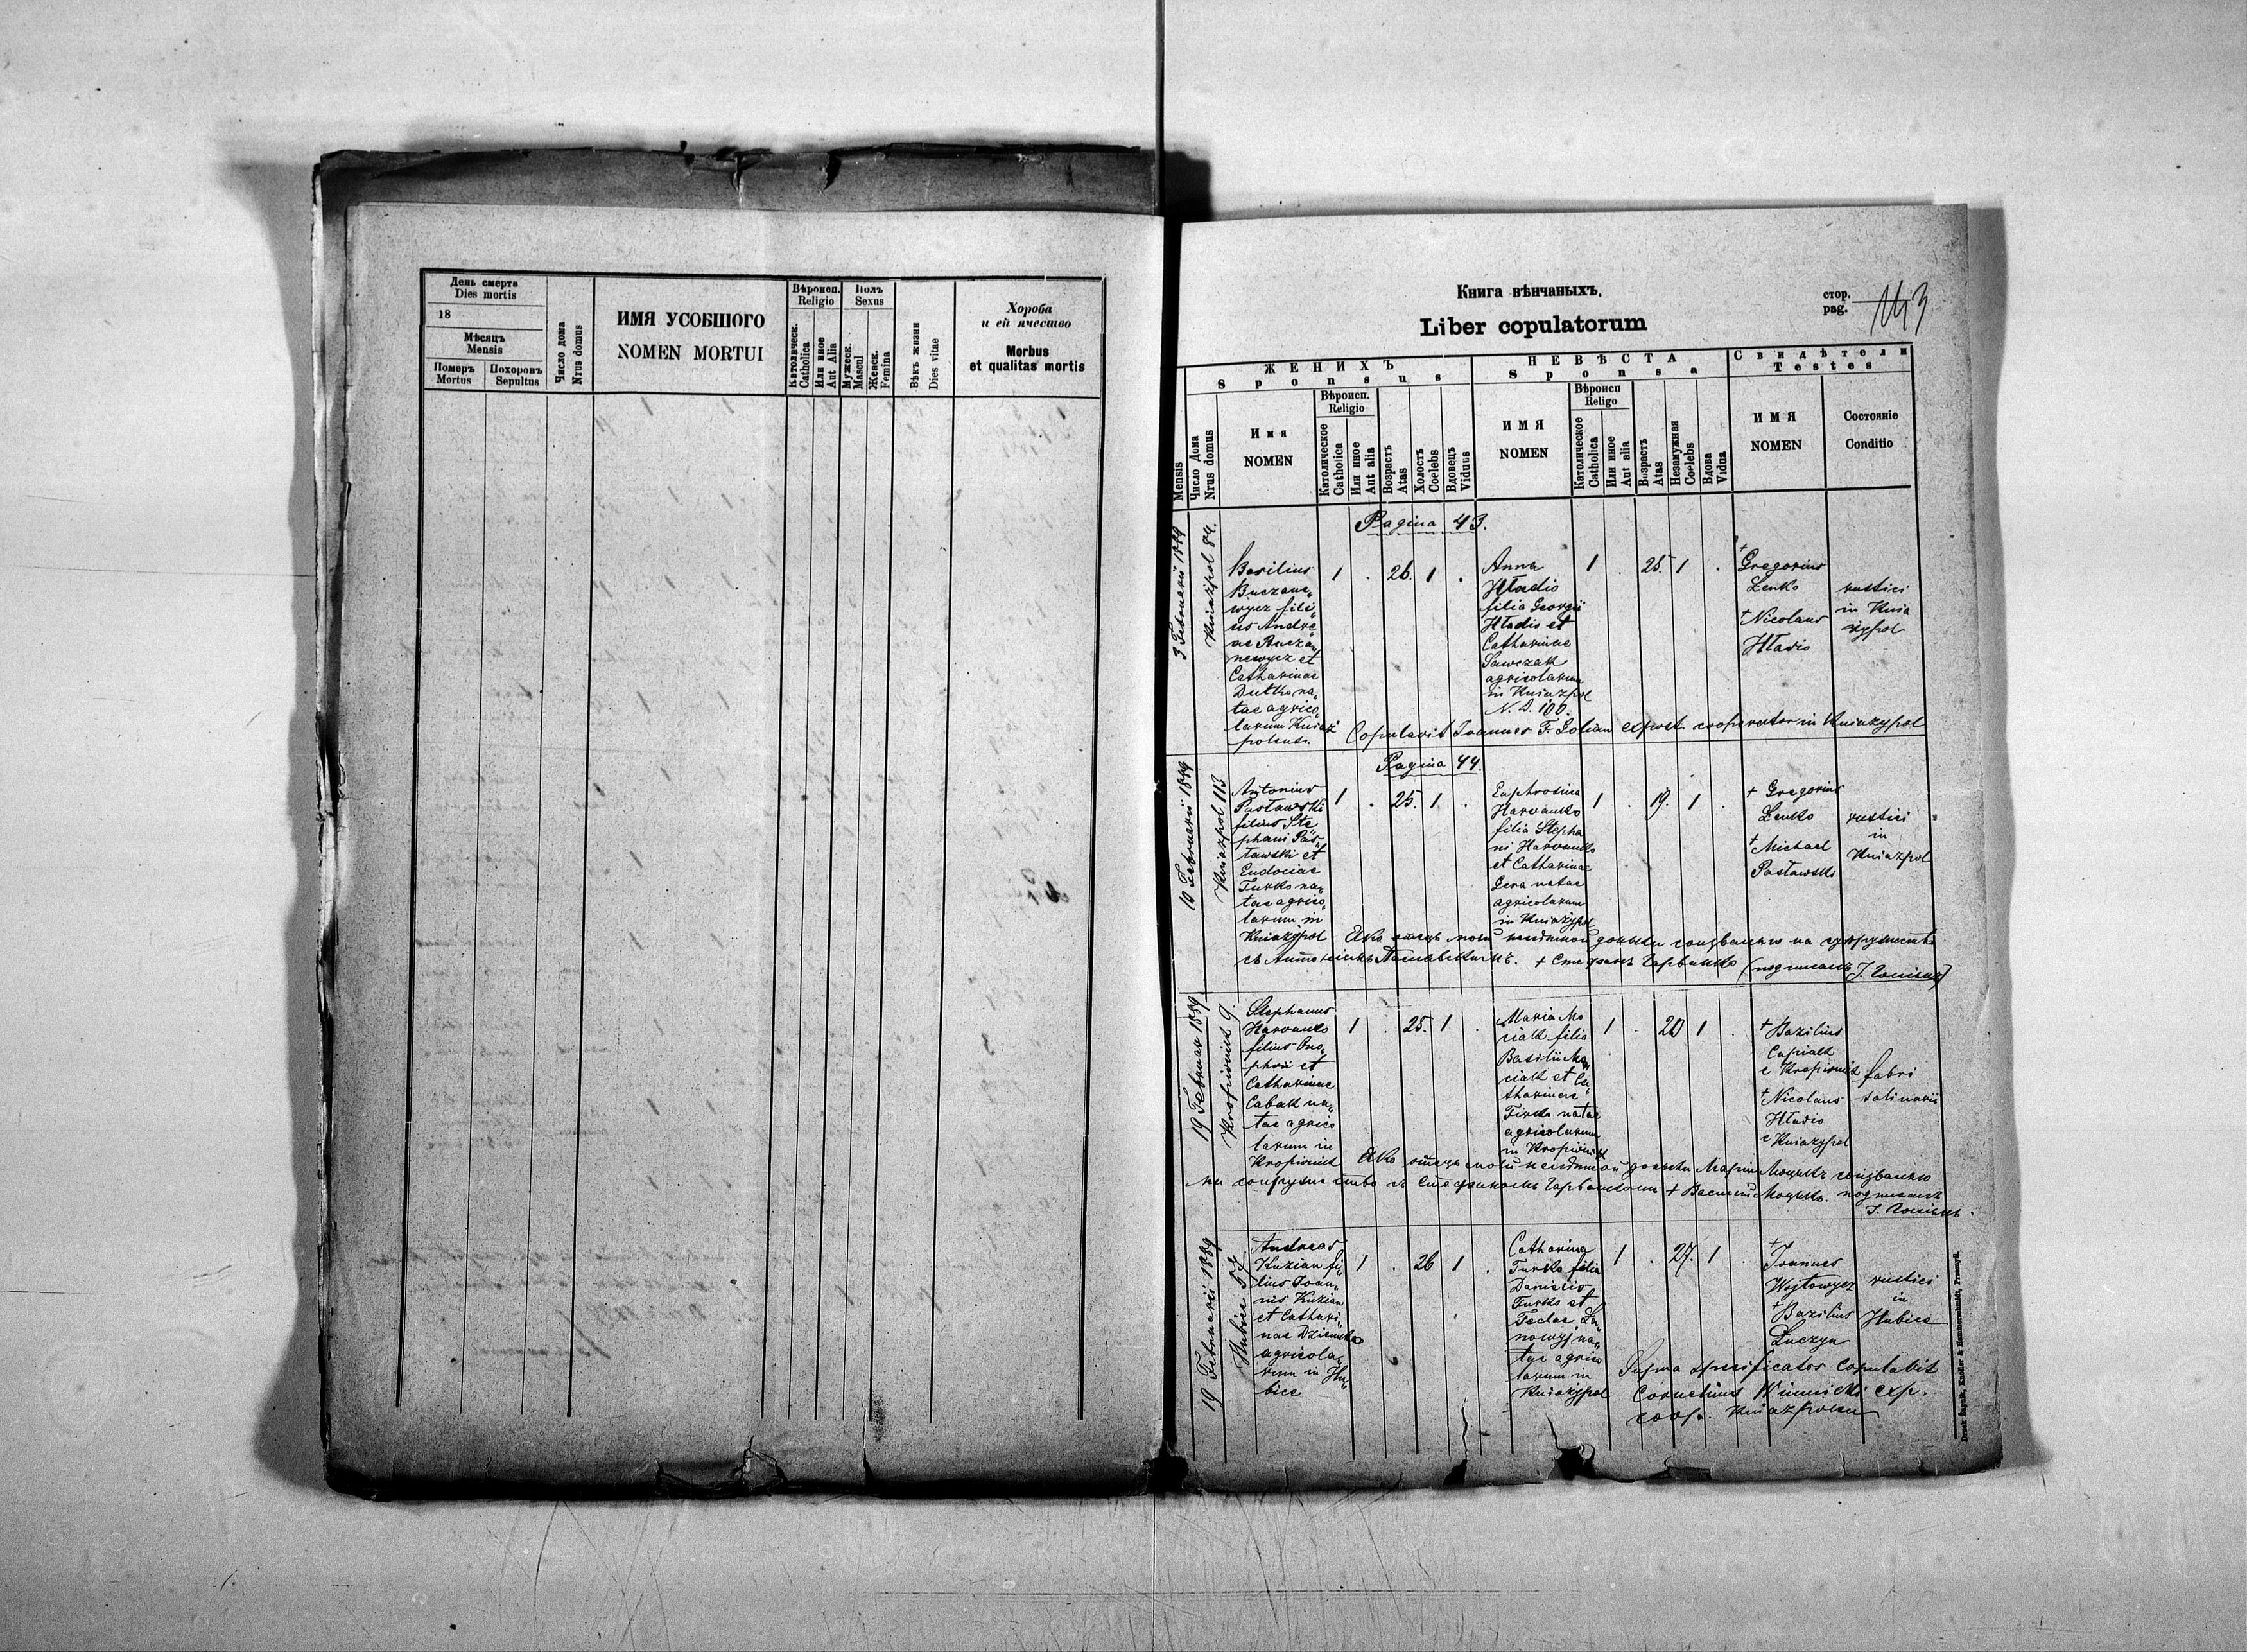 День смерти
Dies mortis
18
Мѣсяцъ
Mensis
Померъ
Mortus
Похоронъ
Sepultus
Число дома
Nrus domus
ИМЯ УСОБШОГО
NOMEN MORTUI
Вѣроисп.
Religio
Католическ.
Catholica
Или иное
Aut Alia
Полъ
Sexus
Мужеск.
Mascul
Женск.
Femina
Вѣкъ жизни
Dies vitae
Хороба
и ей ячество
Morbus
et qualitas mortis
Книга вѣнчаныхъ.
Liber copulatorum
стор.
pag. 143
Mensis
Число Дома
Nrus domus
ЖЕНИХЪ
Sponsus
Имя
NOMEN
Вѣроисп.
Religio
Католическое
Catholica
Или иное
Aut alia
Возрастъ
Atas
Холостъ
Coelebs
Вдовецъ
Viduus
НЕВѢСТА
Sponsa
ИМЯ
NOMEN
Вѣроисп
Religo
Католическое
Catholica
Или иное
Aut alia
Возрастъ
Atas
Незамужная
Coelebs
Вдова
Vidua
Свидѣтели
Testes
ИМЯ
NOMEN
Состояніе
Conditio
Pagina 43.
3 Februarii 1889
Kniazpol 84.
Basilius
Buczane,,
wycz fili,,
us Andre
ae Buczan,,
newycz et
Catharinae
Dutko na,,
tae agrico,,
larum Kniaz
polensi.
1 . 26. 1 .
Anna
Hładio
filia Georgii
Hładio et
Catharinae
Sawczak
agricolarum
in Kniazpol
N. D. 100.
1 . 25. 1 .
+ Gregorius
Lenko
+ Nicolaus
Hładio
rustici
in Knia
zypol
Copulavit Joannes F. Lolian expost. cooperator in Kniazypol
Pagina 44.
10 Februarii 1889
Kniazpol 113
Antonius
Pasławski
filius Ste
phani Pas,,
ławski et
Eudociae
Turko na,,
tae agrico,,
larum in
Kniazypol
1 . 25. 1 .
Euphrosina
Harwanko
filia Stepha
ni Harwanko
et Catharinae
Gera natae
agricolarum
in Kniazypol
1 . 19. 1 .
+ Gregorius
Lenko
+ Michael
Pasławski
rustici
in
Kniazpol
Яко отець
съ Антоніемъ Паславскимъ. + Стефанъ Гарванко
19 Februar 1889
Kropiwnik 9.
Stephanus
Harwanko
filius Ono,,
phrii et
Catharinae
Cabak na,,
tae agrico
larum in
Kropiwnik
1 . 25. 1 .
Maria Mo
ciak filia
Basilii Mo,,
ciak et Ca,,
tharinae
Firko natae
agricolarum
in Kropiwnik
1 . 20 1 .
+ Bazilius
Capiak
e Kropiwnik
+ Nicolaus
Hładio
e Kniazypol
fabri
salinarii
Яко отець
+ Василій Моцякъ.
19 Februarii 1889
Hubice 57
Andreas
Kuzian fi,,
lius Joan,,
nis Kuzian
et Cathari,,
nae
agricola,,
rum in Hu,,
bice
1 . 26 1 .
Catharina
Turko filia
Danielis
Turko et
Teclae La,,
nowyj na,,
tae agrico
larum in
Kniazypol
1 . 27. 1 .
+ Joannes
Wojtowycz
+ Bazilius
Luczyn
rustici
in
Hubice
Supra specificatos copulabit
Cornelius Winnicki exp.
coop.
Druk Łapiak, Knoller & Hammerschmidt, Przemyśl.